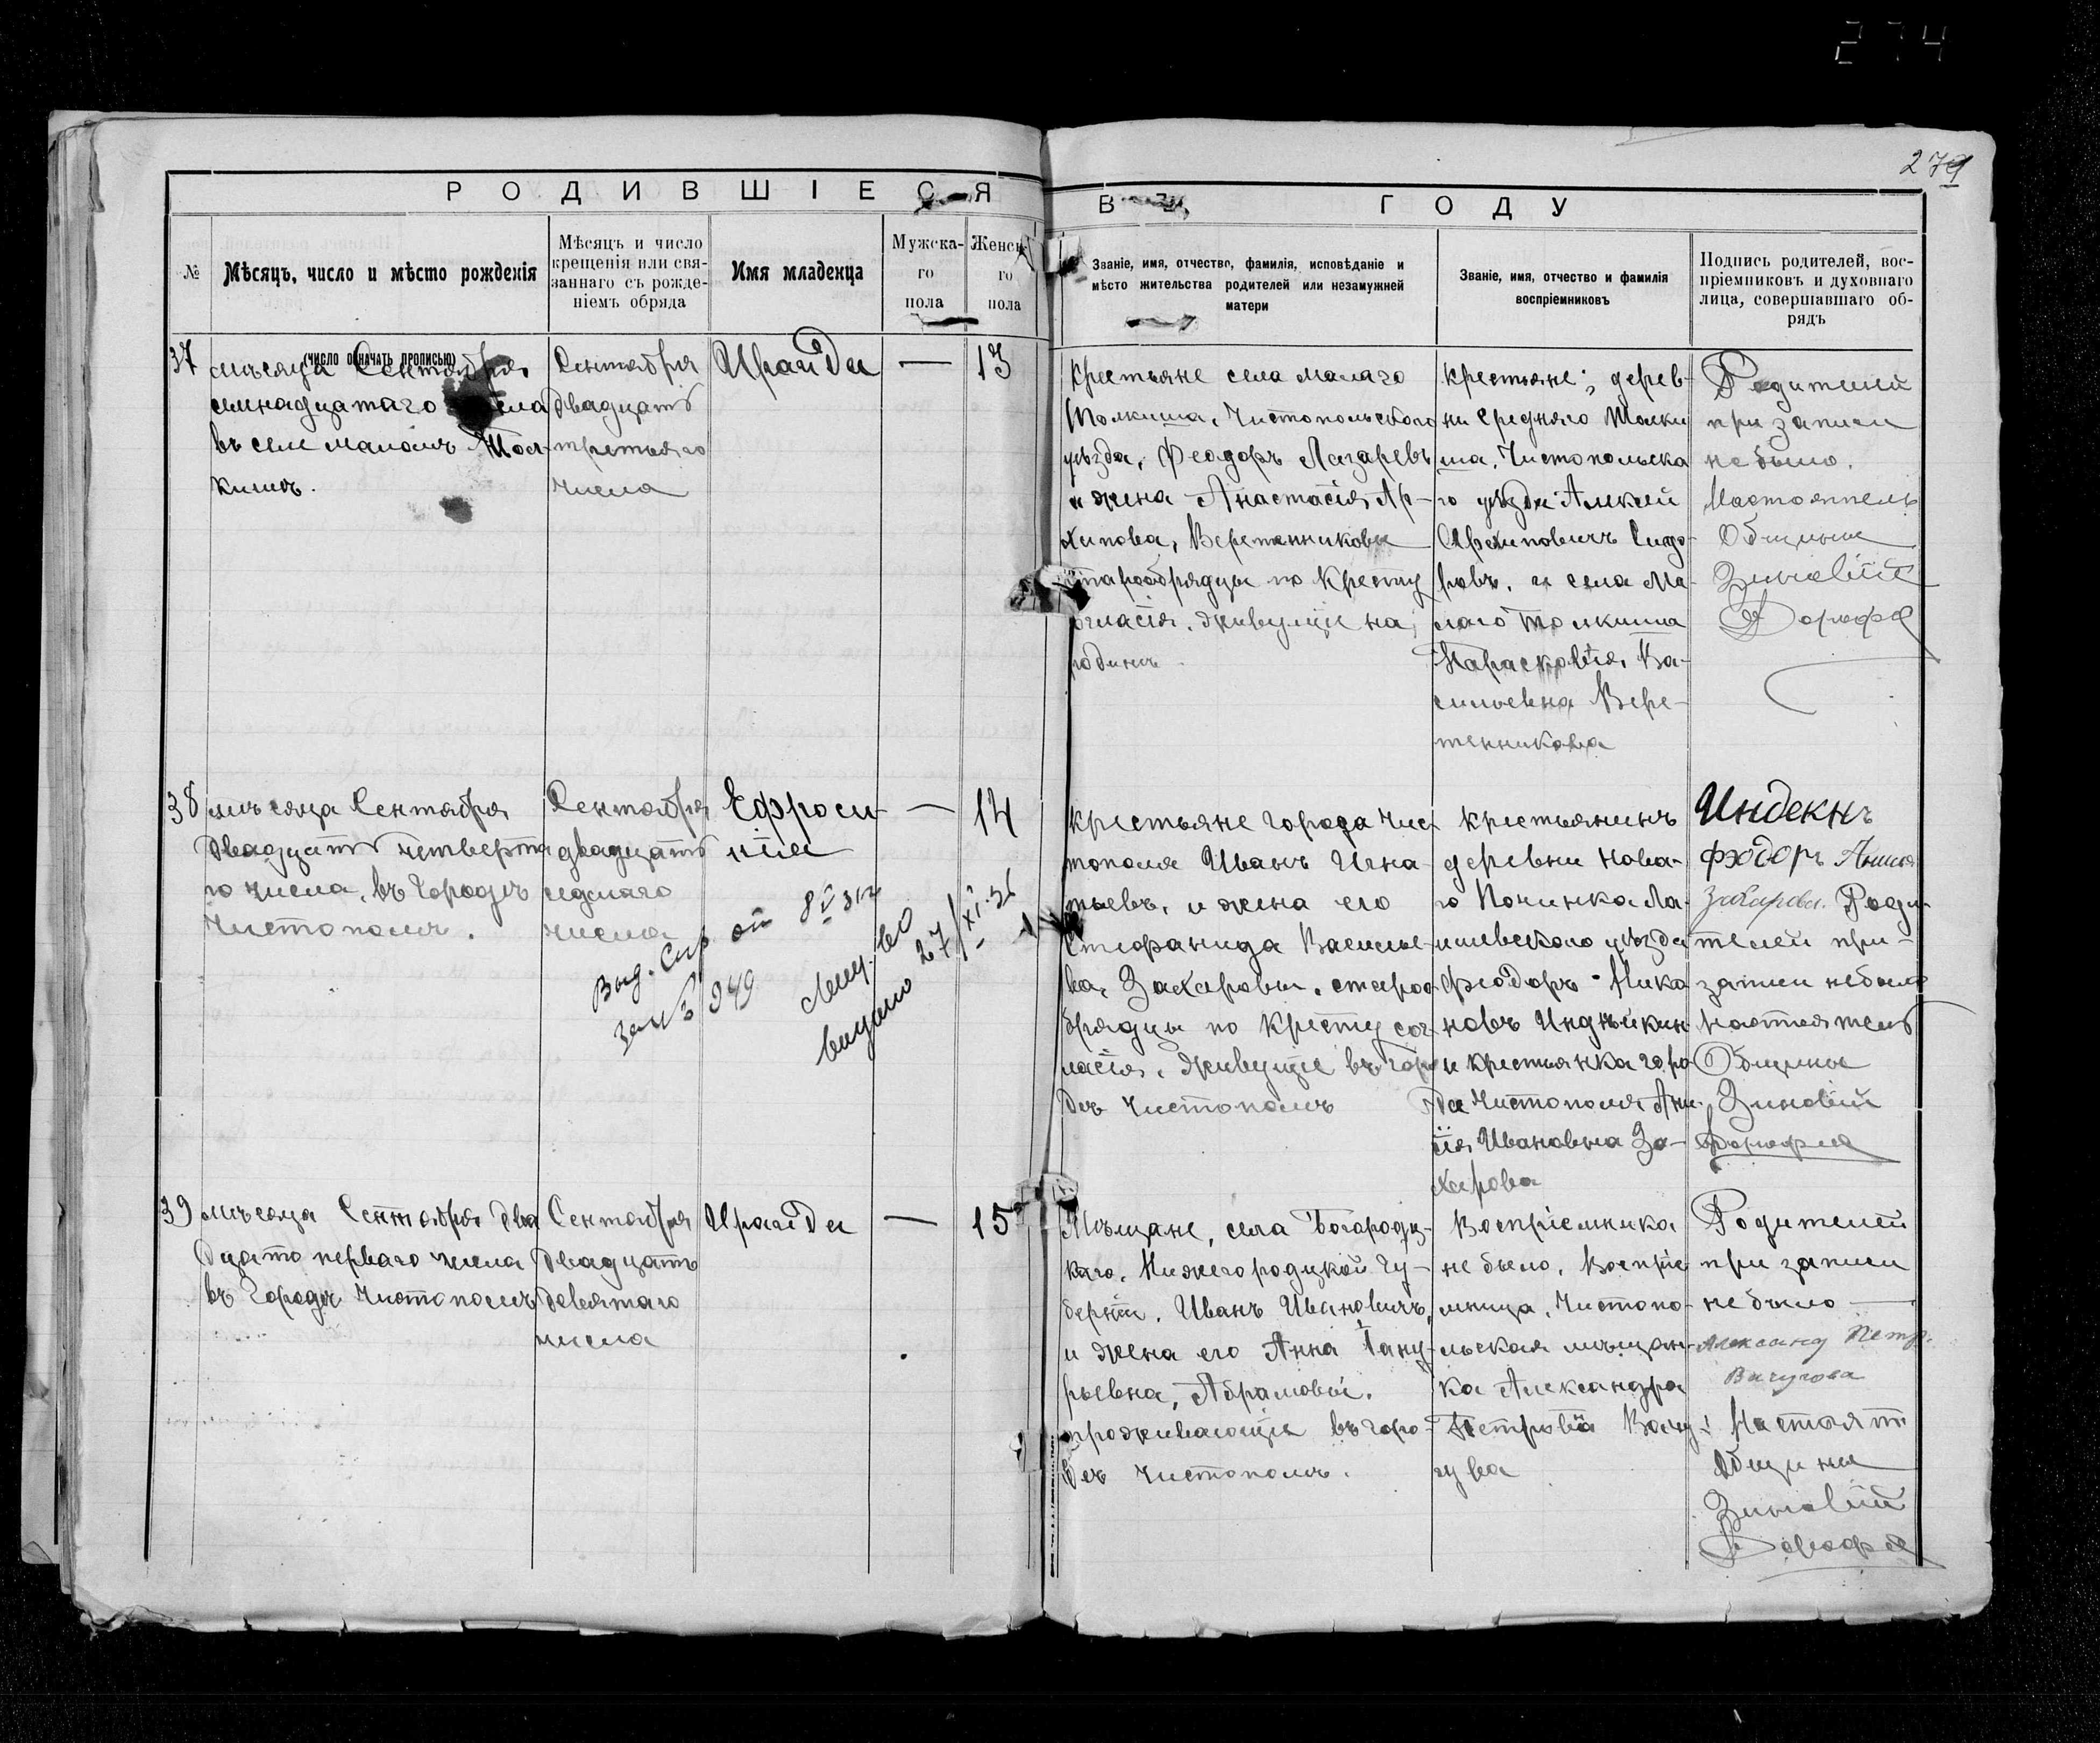 274
279
РОДИВШІЕСЯ
В ГОДУ
№
Мѣсяцъ, число и мѣсто рожденія
Мѣсяцъ и число
крещенія или свя-
заннаго съ рожде-
ніемъ обряда
Имя младенца
Мужска-
го
пола
Женска-
го
пола
Званіе, имя, отчество, фамилія, исповѣданіе и
мѣсто жительства родителей или незамужней
матери
Званіе, имя, отчество и фамилія
воспріемниковъ
Подпись родителей, вос-
пріемниковъ и духовнаго
лица, совершавшаго об-
рядъ
(число означать прописью)
37
мѣсяца Сентября
семнадцатаго числа
въ селѣ маломъ Тол-
кишѣ.
Сентября
двадцать
третьяго
числа
Ираида
—
13
крестьяне села малаго
Толкиша, Чистопольскаго
уѣзда, Феодоръ Лазаревъ
и жена Анастасія Ар-
хипова, Веретенниковы
старообрядцы по Кресту
согласія. живущіе на
родинѣ
крестьяне; дерев-
ни Средняго Толки
ша, Чистопольска
го уѣзда Алексей
Архиповичъ Сидо-
ровъ, и села Ма-
лаго Толкиша
Парасковія Ва-
сильевна Вере-
тенникова
Родителей
при записи
не было.
Настоятель
Общины
Зиновій
Дорофе
38
мѣсяца Сентября
двадцать четверта
го числа, въ Городѣ
Чистополѣ.
Сентября
двадцать
седмаго
числа
Ефроси-
нія
—
14
Выд. Спр от 8/V 31г
за № 249
выдано 27/XI-36
крестьяне города Чис
тополя Иванъ Игна-
тьевъ, и жена его
Стефанида Василье-
ва, Захаровы. староо
брядцы по Кресту сог
ласія. Живущіе въ горо
дѣ Чистополѣ
крестьянинъ
деревни Нова-
го Починка Ла-
ишевскаго уѣзда
Фіодоръ Нико
новъ Индѣйкин
и крестьянка горо
да Чистополя Ани
сія Ивановна За-
харова
Индекнъ
фэодоръ Анися
Захарова. Роди-
телей при-
записи не было
Настоятель
Общины
Зиновій
Дорофеа
39
мѣсяца Сентября два
дцать перваго числа
въ Городѣ Чистополѣ
Сентября
двадцать
девятаго
числа
Ираида
—
15
Мѣщане, села Богородц-
каго, Нижегородцкой гу-
берніи. Иванъ Ивановичъ,
и жена его Анна
рьевна, Абрамовы.
проживающіе въ горо-
дѣ Чистополѣ.
Воспріемника
не было, Воспріе
мница, Чистопо-
льская мѣщан-
ка Александра
Петровна
Родителей
при записи
не было —
Александ Петр.
Вачугова
Настоят
Общины
Зиновій
Дорофеа